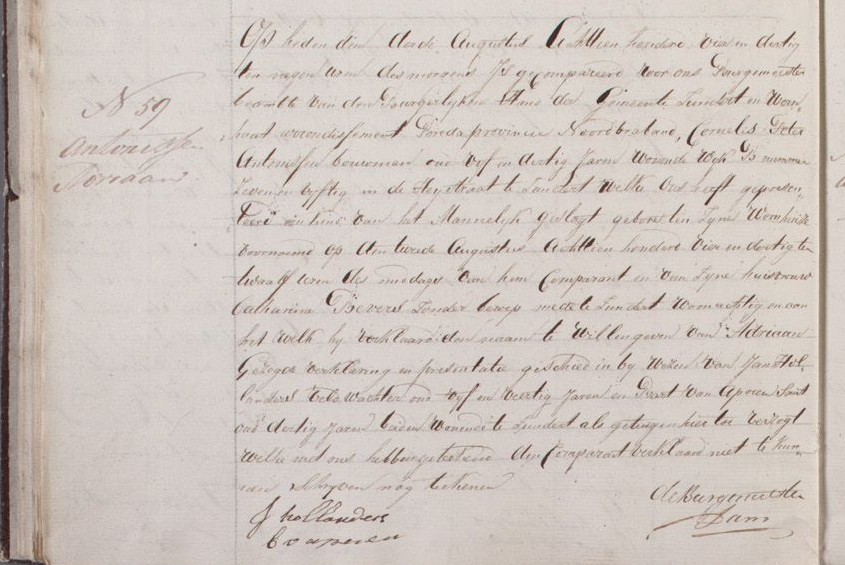 N 59
Antonissen
Adriaan
Op heden den derde Augustus Achttien hondert vier en dertig
ten negen uren des morgens Is gecompareert voor ons Bourgemeester
beambte van den Bourgerlyken Staat der Gemeente Zundert en Wern
hout arrondissement Breda provincie Noordbraband, Cornelis Peter
Antonissen bouwman oud vyf en dertig Jaren wonende Wyk B nummer
Zeven en vyftig in de Heystraat te Zundert Welke Ons heeft gepresen
teert een kind van het Mannelyk geslagt geboren ten Zyne Woonhuise
voornoemd op den tweede Augustus Achttien hondert vier en dertig ten
twaalf uren des middags van hem Comparant en van Zyne huisvrouw
Catharina Bevers Zonder beroep mede te Zundert Woonachtig en aan
het Welk hy Verklaarde den naam te Willen geven van Adriaan
Gezegde verklaring en presentatie geschied in by Wezen van Jan Hol
landers Veld Wachter oud vyf en veertig Jaren en Geert van Aperen
oud dertig Jaren beiden Wonende te Zundert als getuigen hier toe Verzogt
Welke met ons hebben getekend den Comparant verklaard niet te kun
nen Schryven nog tekenen
de Burgemeester
J hollanders
Dam